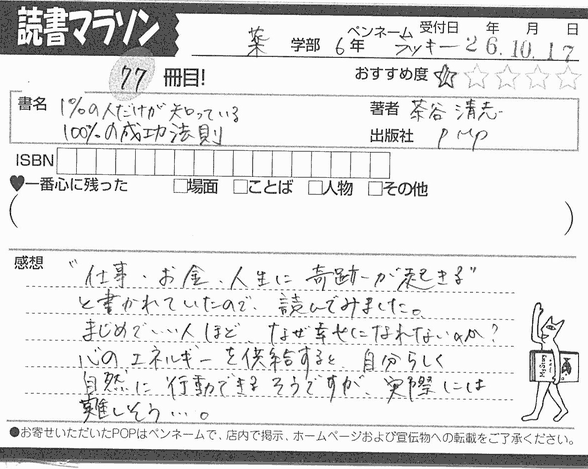 読書マラソン
薬 学部 6年 ペンネーム ラッキー 受付日 26年10月17日
77 冊目!
おすすめ度 ★☆☆☆☆
書名 1%の人だけが知っている
100%の成功法則
著者 茶谷清志
出版社 PHP
ISBN
♥一番心に残った □場面 □ことば □人物 □その他
( )
感想
"仕事・お金・人生に奇跡が起きる"
と書かれていたので、読んでみました。
まじめでいい人ほど、なぜ幸せになれないのか?
心のエネルギーを供給すると、自分らしく
自然に行動できるそうですが、実際には
難しそう…。
Mystery
●お寄せいただいたPOPはペンネームで、店内で掲示、ホームページおよび宣伝物への転載をご了承ください。